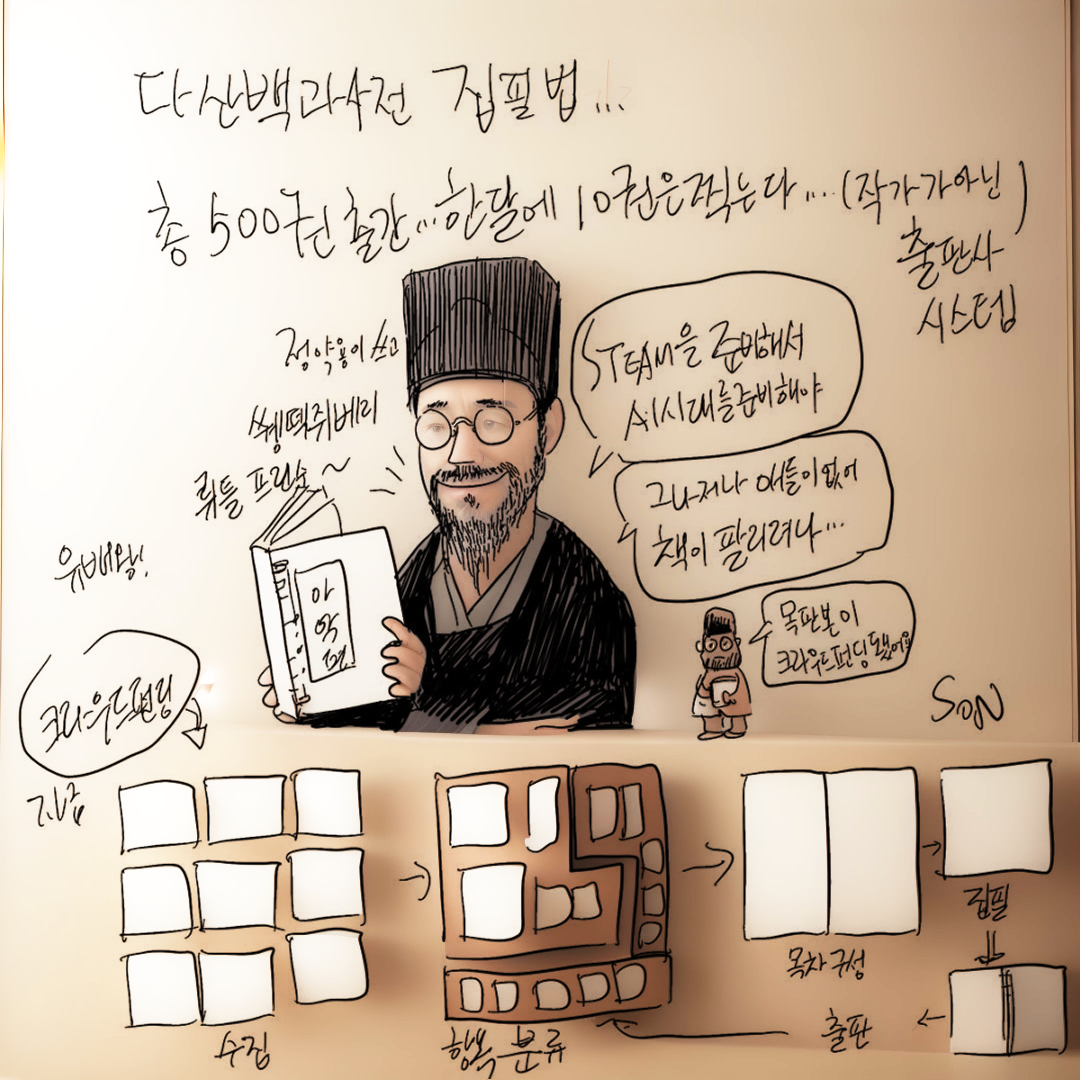 다산백과사전 집필법...
총 500권 출간...한달에 10권은 적는다....(작가가아닌)
출판사
시스템
정약용이 쓰고
쌩떽쥐베리
뤼틀 프린스~
유배왕!
크라우드펀딩
지급
아
악
편
STEAM을 준비해서
AI시대를준비해야
그나저나 애들이없어
책이 팔리려나...
목판본이
크라우드펀딩됐어요
SON
수집
항목 분류
목차 구성
집필
출판